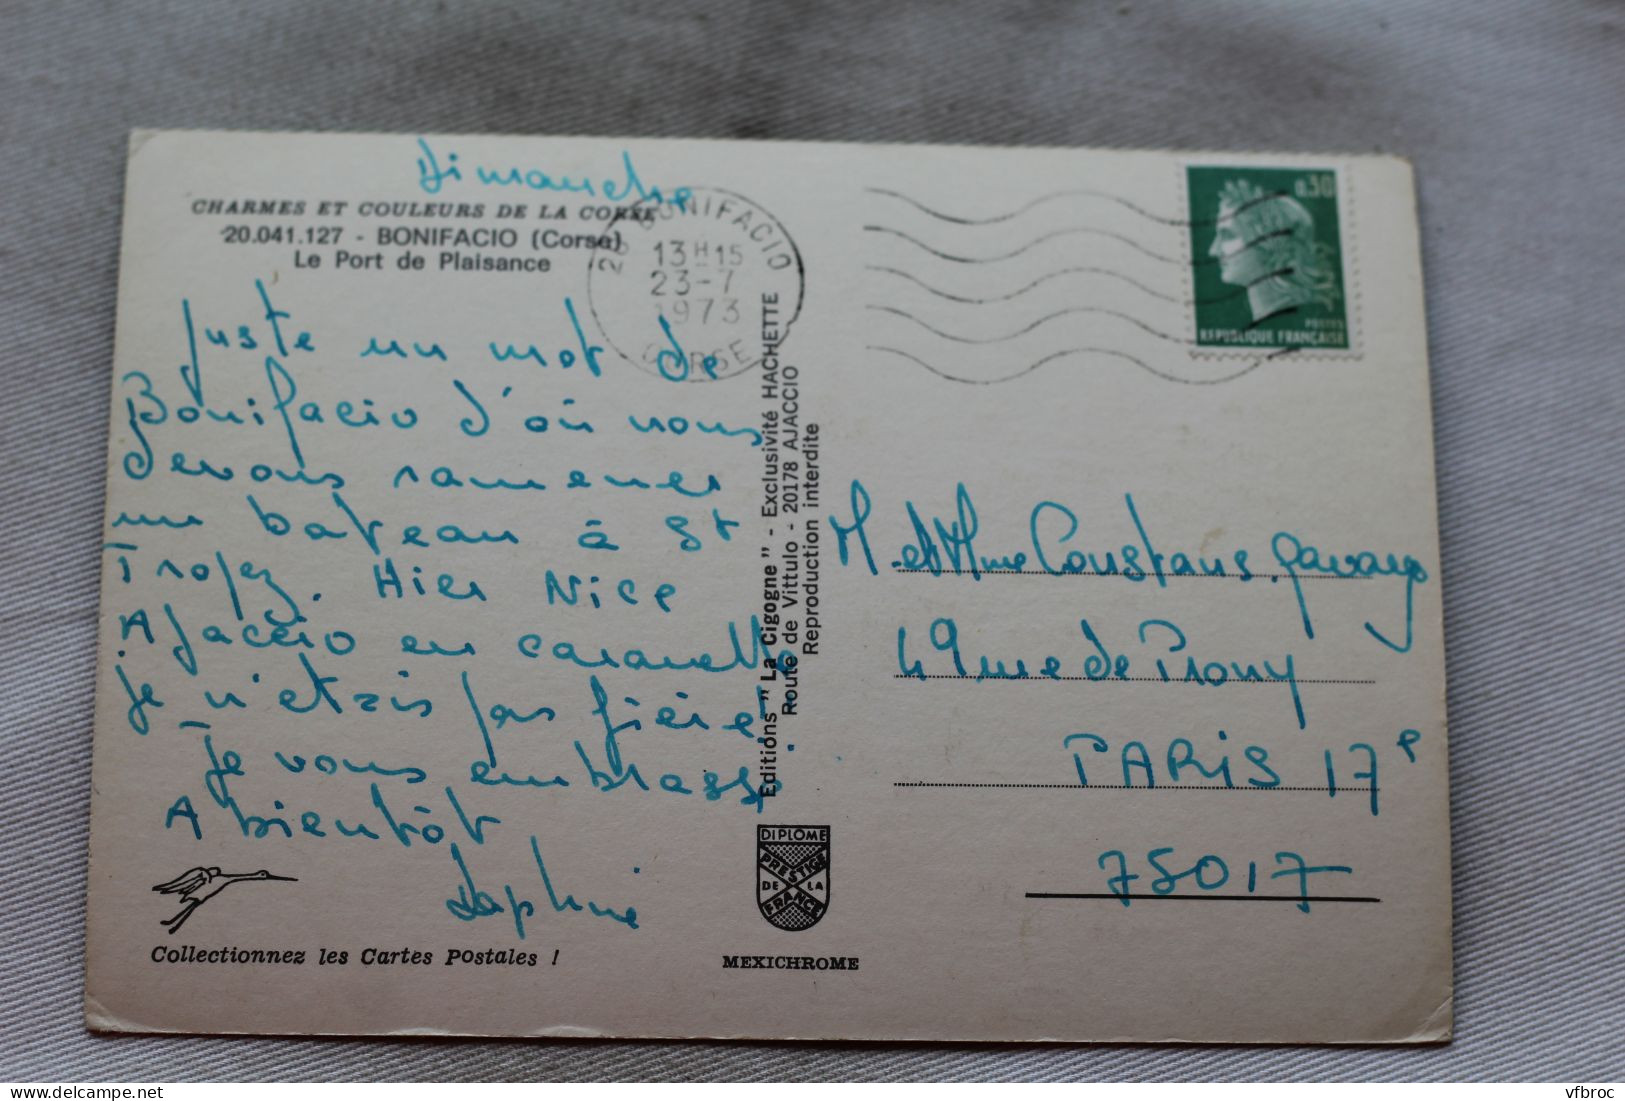 Dimanche
CHARMES ET COULEURS DE LA CORSE
20.041.127 - BONIFACIO (Corse)
Le Port de Plaisance
Juste un mot de
Bonifacio d'où nous
devons ramener
un bateau à St
Tropez. Hier Nice
Ajaccio en caravelle
je n'étais pas fière!
Je vous embrasse.
A bientôt
Daphné
Collectionnez les Cartes Postales !
20 BONIFACIO
13 H 15
23-7
1973
CORSE
Editions " La Cigogne " - Exclusivité HACHETTE
Route de Vittulo - 20178 AJACCIO
Reproduction interdite
DIPLOME
PRESTIGE
DE LA
FRANCE
MEXICHROME
0,30
POSTES
REPUBLIQUE FRANÇAISE
M. et Mme Constans
49 rue de Prony
PARIS 17e
75017
vfbroc